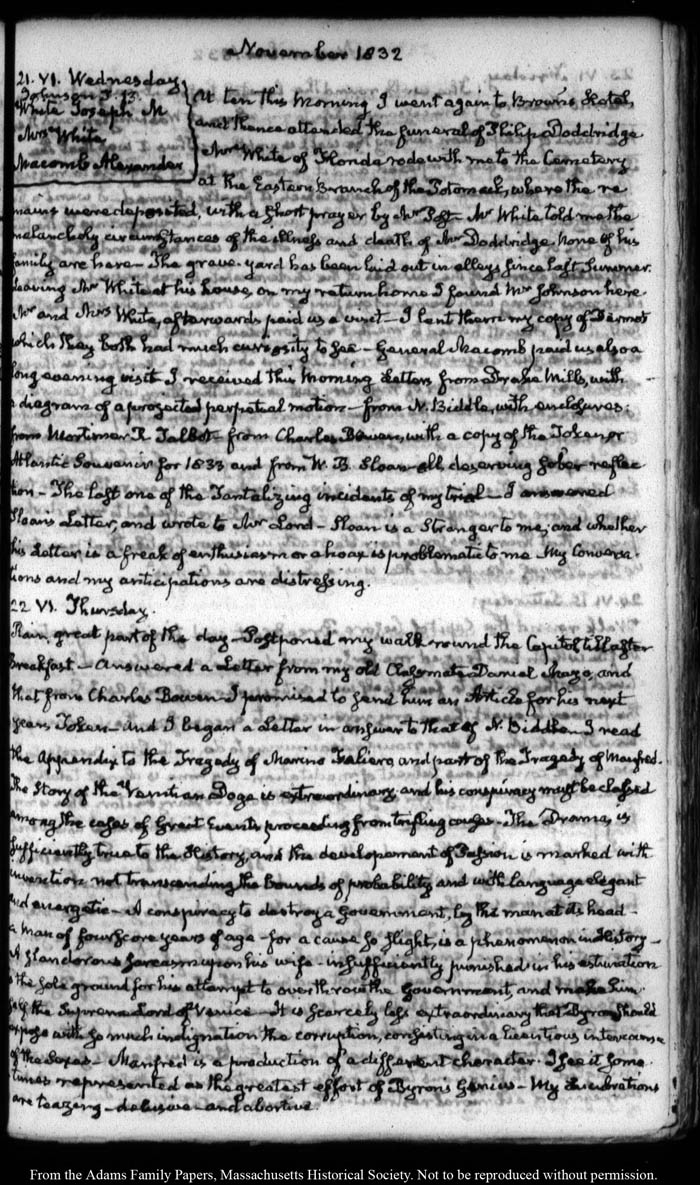 November 1832
21. VI. Wednesday
Johnson T. B.
White Joseph M
Mrs White
Macomb Alexander
At ten this Morning I went again to Brown's Hotel,
and thence attended the funeral of Philip Doddridge
Mr White of Florida rode with me to the Cemetery
at the Eastern Branch of the Potomack, where the re
mains were deposited, with a short prayer by Mr Post. Mr White told me the
melancholy circumstances of the illness and death of Mr Doddridge. None of his
family are here. The grave-yard has been laid out in alleys since last Summer.
Leaving Mr White at his house, on my return home I found Mr Johnson here
Mr and Mrs White, afterwards paid us a visit — I lent them my copy of Dermot
which they both had much curiosity to see — General Macomb paid us also a
long evening visit. I received this Morning Letters from Drake Mills, with
a diagram of a projected perpetual motion — from N. Biddle, with enclosures:
from Mortimer R Talbot — from Charles Bowen, with a copy of the Token or
Atlantic Souvenir for 1833 and from W. B. Sloan — all deserving sober reflec
tion — The last one of the Tantalizing incidents of my trial — I answered
Sloan's Letter, and wrote to Mr Lord — Sloan is a Stranger to me, and whether
his Letter is a freak of enthusiasm or a hoax is problematic to me. My Conversa
tions and my anticipations are distressing.
22 VI. Thursday.
Rain, great part of the day — Postponed my walk round the Capitol till after
Breakfast — Answered a Letter from my old Classmate Daniel and
that from Charles Bowen — I promised to send him an Article for his next
year's Token — And I began a Letter in answer to that of N. Biddle — I read
the Appendix to the Tragedy of Marino Faliero and part of the Tragedy of Manfred.
The Story of the Venitian Doge is extraordinary, and his conspiracy must be classed
among the cases of Great Events proceeding from trifling causes — The Drama, is
sufficiently true to the History, and the developement of Passion is marked with
invection not transcending the bounds of probability and with language elegant
and energetic — A conspiracy to destroy a Government, by the man at its head —
a man of fourscore years of age — for a cause so slight, is a phenomenon in History —
A slanderous sarcasm upon his wife — insufficiently punished in his estimation
is the sole ground for his attempt to overthrow the Government, and make him
self the Supreme Lord of Venice — It is scarcely less extraordinary that Byron should
expose with so much indignation the corruption, consisting in a licentious intercourse
of the Sexes — Manfred is a production of a different character. I see it some
times represented as the greatest effort of Byron's Genius — My lucubrations
are teazing — delusive — and abortive.
From the Adams Family Papers, Massachusetts Historical Society. Not to be reproduced without permission.